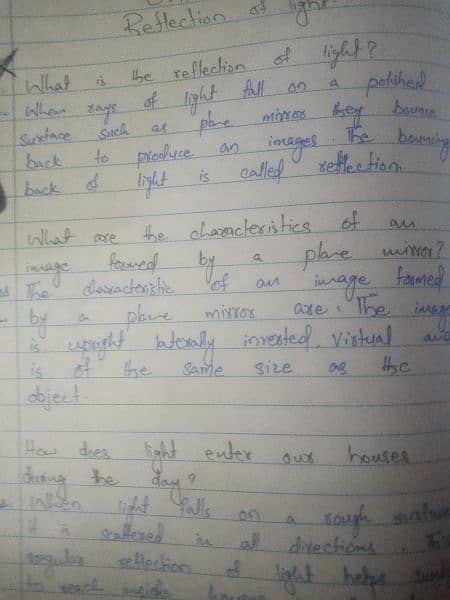 Reflection of light
What is the reflection of light?
When rays of light fall on a polished
surface such as plane mirror they bounce
back to produce an images. The bouncing
back of light is called reflection.
What are the characteristics of an
image formed by a plane mirror?
The characteristic of an image formed
by a plane mirror are: The image
is upright laterally inverted, Virtual and
is of the same size as the
object.
How does light enter our houses
during the day?
When light falls on a rough surface
it is scattered in all directions. This
regular reflection of light helps
to reach inside